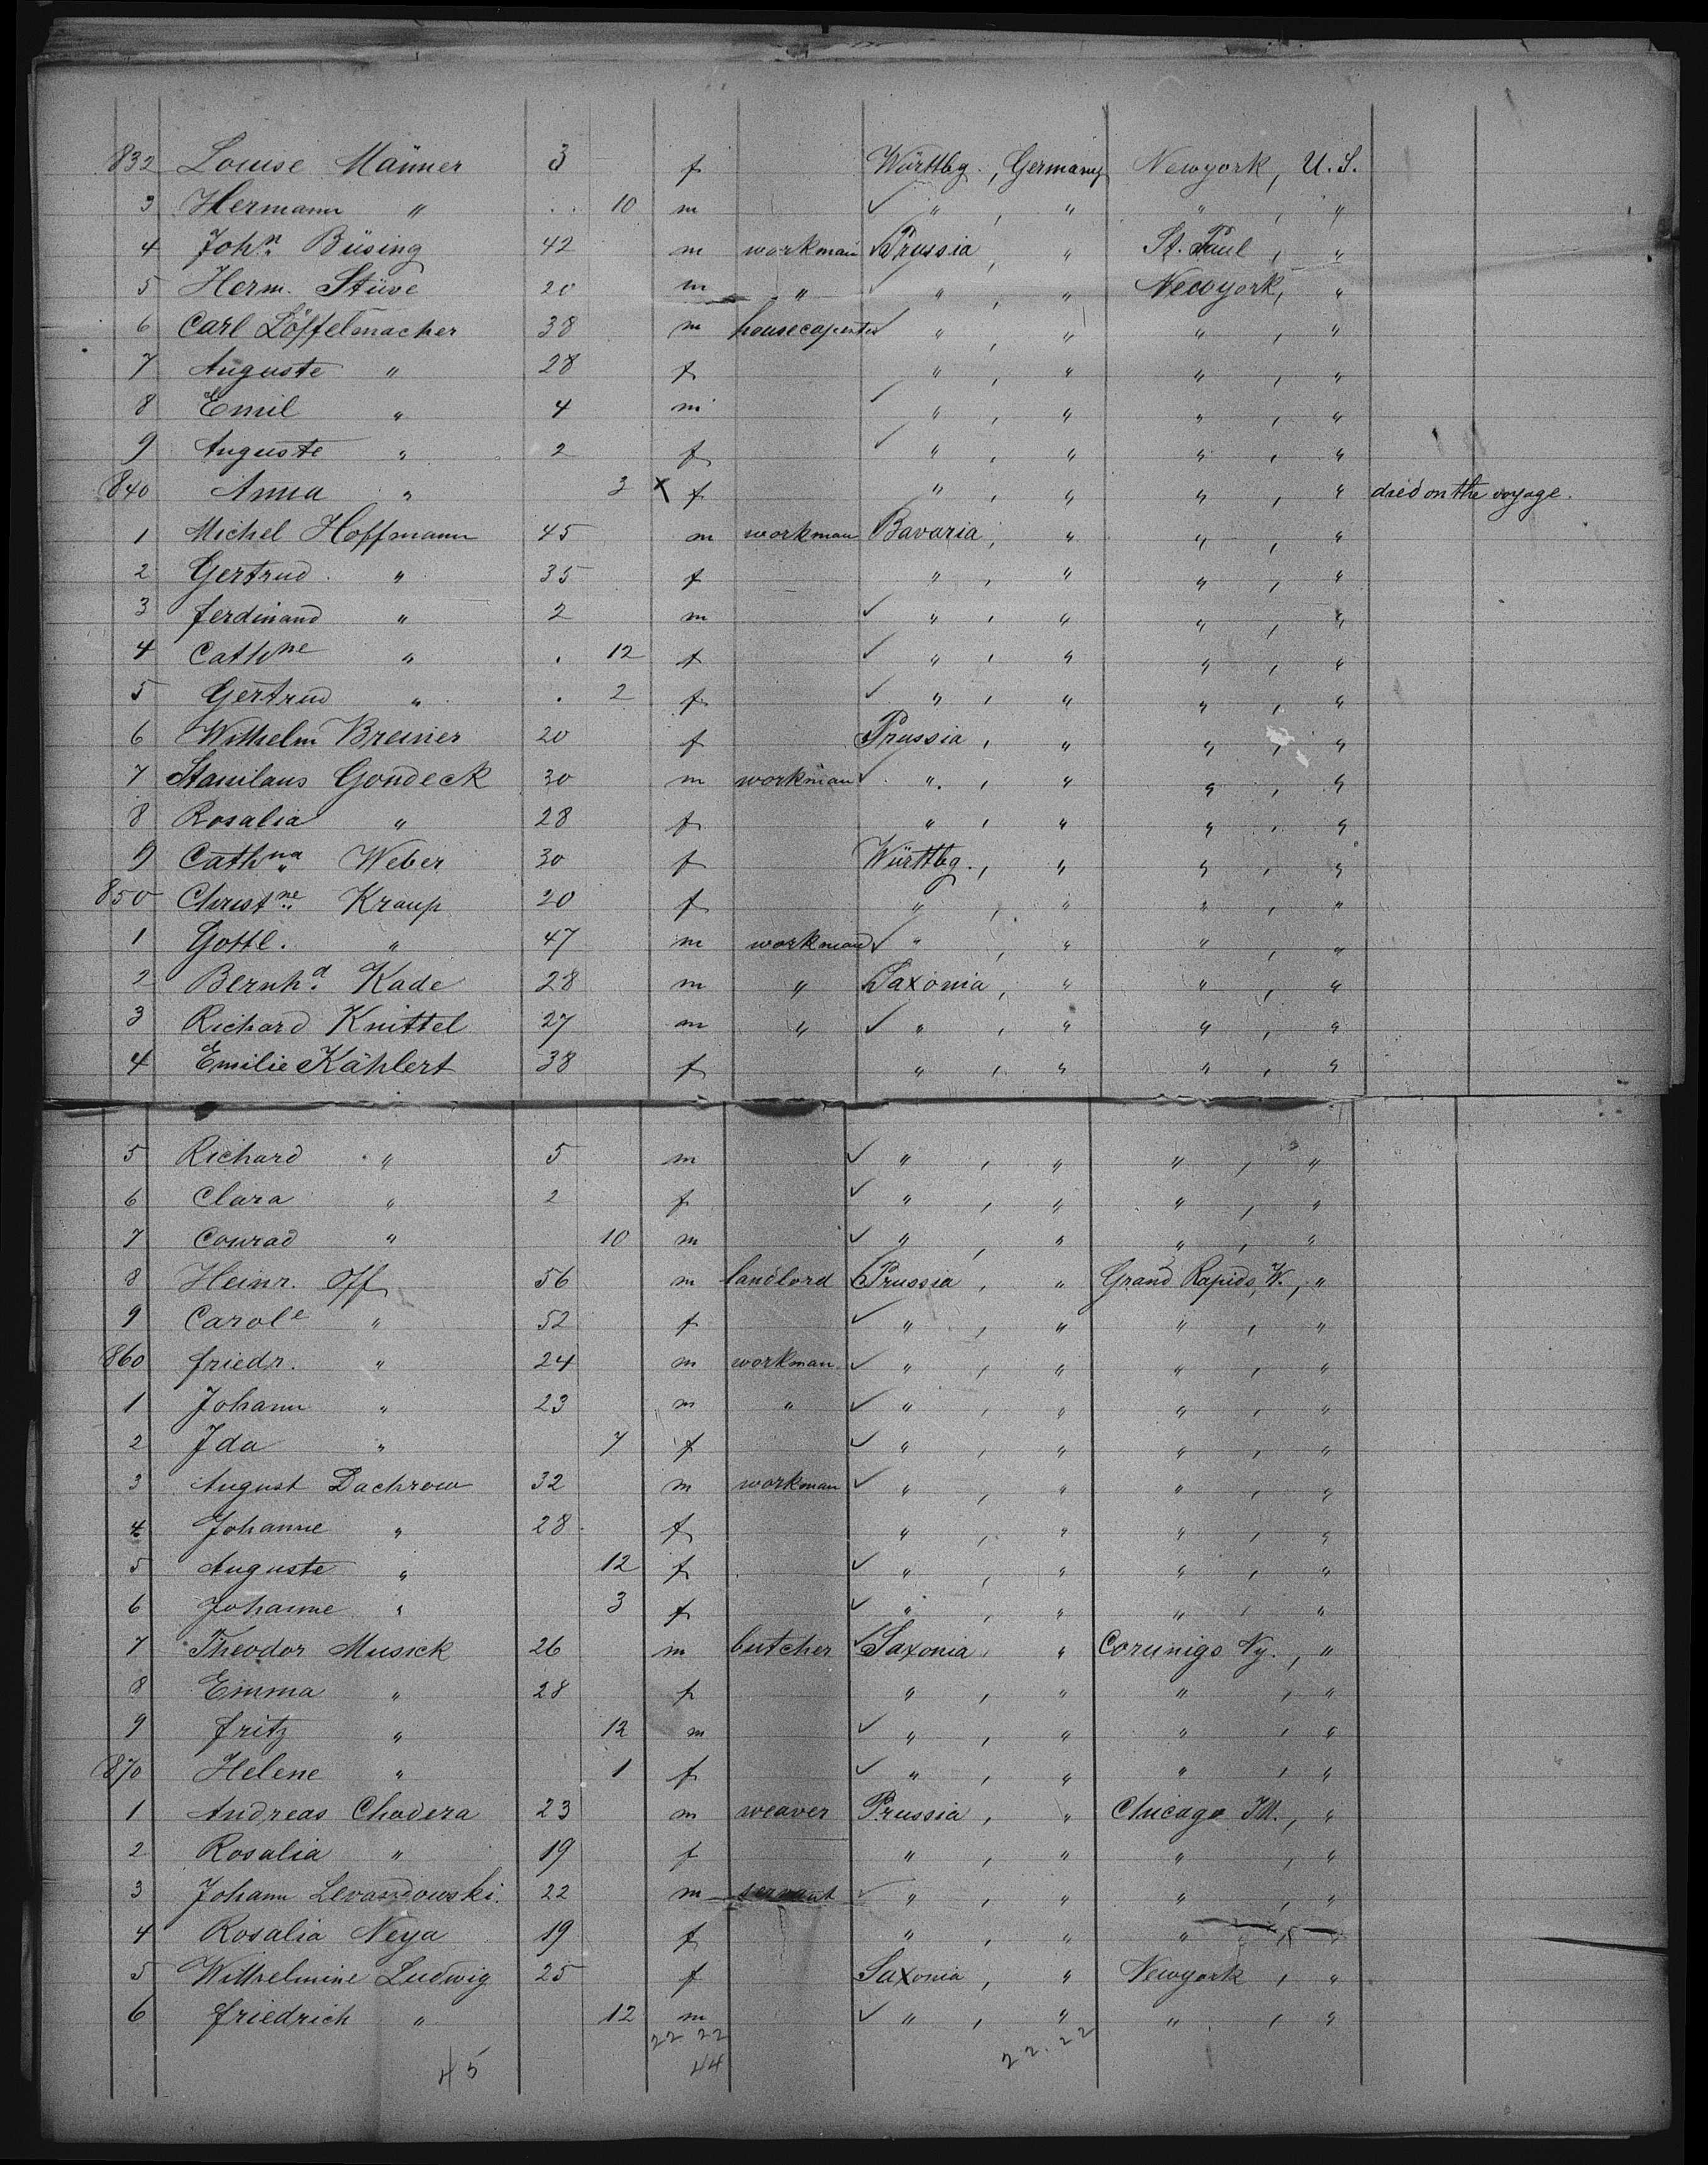 832 Louise Männer 3 f Württbg., Germany Newyork, U.S.
3 Hermann " . . 10 m ✓ " , " " , "
4 Joh.n Büsing 42 m workman ✓ Prussia, " St. Paul, "
5 Herm. Stüve 20 m " ✓ " , " Newyork, "
6 Carl Löffelmacher 38 m housecapenter ✓ " , " " , "
7 Auguste " 28 f " , " " , "
8 Emil " 4 m ✓ " , " " , "
9 Auguste " 2 f ✓ " , " " , "
840 Anna " 3 x f " , " " , " died on the voyage.
1 Michel Hoffmann 45 m workman Bavaria, " " , "
2 Gertrud " 35 f " , " " , "
3 ferdinand " 2 m ✓ " , " " , "
4 Cathne " . 12 f ✓ " , " " , "
5 Gertrud " . 2 f ✓ " , " " , "
6 Wilhelm Breinier 20 f Prussia, " " , "
7 Stanilaus Gondeck 30 m workman ✓ " , " " , "
8 Rosalia " 28 f " , " " , "
9 Cathna Weber 30 f Württbg., " " , "
850 Christne Kraup 20 f " , " " , "
1 Gottl. " 47 m workman ✓ " , " " , "
2 Bernh.d Kade 28 m " ✓ Saxonia, " " , "
3 Richard Knittel 27 m " ✓ " , " " , "
4 Emilie Kählert 38 f " , " " , "
5 Richard " 5 m ✓ " , " " , "
6 Clara " 2 f ✓ " , " " , "
7 Conrad " 10 m ✓ " , " " , "
8 Heinr. Off 56 m landlord ✓ Prussia, " Grand Rapids, W., "
9 Carole " 52 f ✓ " , " " , "
860 friedr. " 24 m workman. ✓ " , " " , "
1 Johann " 23 m " ✓ " , " " , "
2 Ida " 7 f ✓ " , " " , "
3 August Dachrow 32 m workman ✓ " , " " , "
4 Johanne " 28 f " , " " , "
5 Auguste " 12 f ✓ " , " " , "
6 Johanne " 3 f ✓ " , " " , "
7 Theodor Musick 26 m butcher ✓ Saxonia, " Corunigo Ny., "
8 Emma " 28 f " , " " , "
9 fritz " 12 m ✓ " , " " , "
870 Helene " 1 f ✓ " , " " , "
1 Andreas Chodera 23 m weaver Prussia, " Chicago Ill., "
2 Rosalia " 19 f " , " " , "
3 Johann Levandowski. 22 m servant ✓ " , " " , "
4 Rosalia Neya 19 f " , " " , "
5 Wilhelmine Ludwig 25 f Saxonia, " Newyork, "
6 friedrich " 12 m ✓ " , " " , "
22 22 22.22
45 44